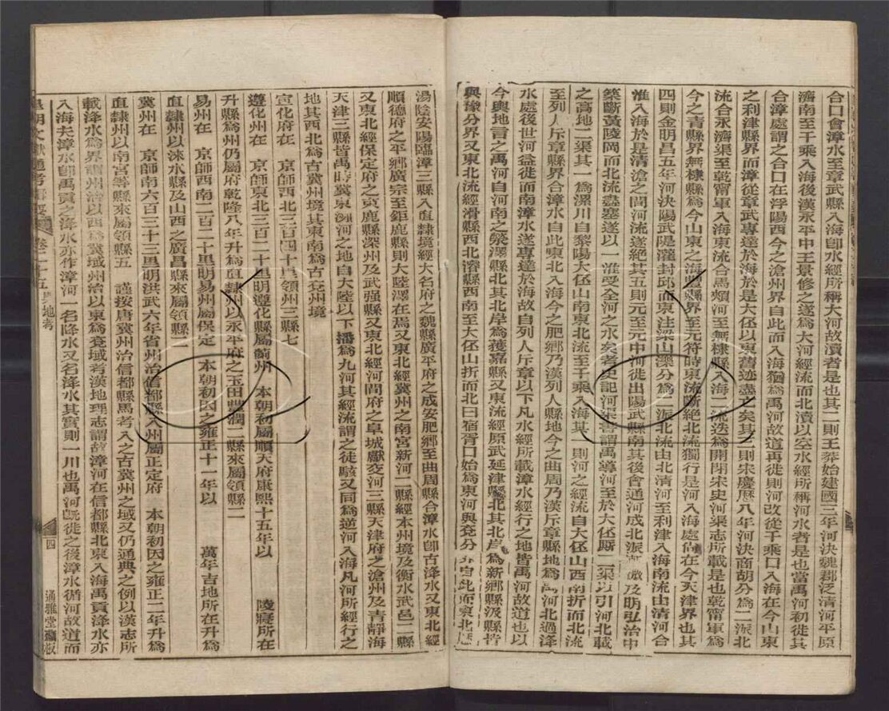 合口會漳水至章武縣入海卽水經所稱大河故瀆者是也其二則王莽始建國三年河決魏郡泛淸河平原
濟南至千乘入海後漢永平中王景修之遂爲大河經流而北瀆以空水經所稱河水者是也當禹河初徙其
合漳處謂之合口在浮陽西今之滄州界自此而入海猶爲禹河故道再徙則河改從千乘口入海在今山東
之利津縣界而漳從章武專達於海於是大伾以東舊迹盡之矣其三則宋慶歷八年河決商胡分爲二派北
流合永濟渠至乾甯軍入海東流合馬頰河至無棣縣入海二流迭爲開閉宋史河渠志所載是也乾甯軍爲
今之靑縣界無棣縣爲今山東之海縣界至元符東流斷絕北流獨行是河入海處尙在今天津界也其
四則金明昌五年河決陽武隄灌封邱而東注梁山濼分爲二派北流由北淸河至利津入海南流由淸河合
淮入海於是淸滄之間河流遂絕其五則元至元中河徙出陽武縣南其後會通河成北派微及明弘治中
築斷黃陵岡而北流盡塞遂以一淮受全河之水矣考史記河渠書謂禹導河至於大伾厮二渠以引河北載
之高地二渠其一爲漯川自黎陽大伾山南東北流至千乘入海其一則河之經流自大伾山西南折而北流
至列人斥章縣界合漳水自此東北入海今之肥鄉乃漢列人縣地今之曲周乃漢斥章縣地爲河北過洚
水處後世河益徙而南漳水遂專達於海故自列人斥章以下凡水經所載漳水經行之地皆禹河故道也以
今輿地言之禹河自河南之滎澤縣北其北岸爲獲嘉縣又東北流經原武延津縣北其北岸爲新鄉縣汲縣皆
與豫分界又東北流經滑縣西北濬縣西南至大伾山折而北曰宿胥口始爲東河與兗分界自此而東北過
湯陰安陽臨漳三縣入直隸境經大名府之魏縣廣平府之成安肥鄉至曲周縣合漳水卽古洚水又東北經
順德府之平鄉廣宗至鉅鹿縣則大陸澤在焉又東北經冀州之南宮新河二縣經本州境及衡水武邑二縣
又東北經保定府之束鹿縣深州及武强縣又東北經河間府之阜城獻交河三縣天津府之滄州及靑靜海
天津三縣皆禹時冀東瀕河之地自大陸以下播爲九河其經流謂之徒駭又同爲逆河入海凡河所經行之
地其西北爲古冀州境其東南爲古兗州境
宣化府在 京師西北三百四十里領州三縣七
遵化州在 京師東北三百二十里明遵化縣屬薊州 本朝初屬順天府康熙十五年以 陵寢所在
升縣爲州仍屬府乾隆八年升爲直隸州以永平府之玉田豐潤二縣來屬領縣二
易州在 京師西南二百二十里明易州屬保定 本朝初因之雍正十一年以 萬年吉地所在升爲
直隸州以淶水縣及山西之廣昌縣來屬領縣二
冀州在 京師南六百三十三里明洪武六年省州治信都縣入州屬正定府 本朝初因之雍正二年升爲
直隸州以南宮等縣來屬領縣五 謹按唐冀州治信都縣馬考入之古冀州之域又仍通典之例以漢志所
載洚水爲界謂州治以西爲冀域州治以東爲兗域考漢地理志謂故漳河在信都縣北東入海禹貢洚水亦
入海夫漳水卽禹貢之洚水亦作漳河一名降水又名洚水其實則一川也禹河旣徙之後漳水循河故道而
皇朝文獻通考輯要 卷二十五 輿地考 四 通雅堂